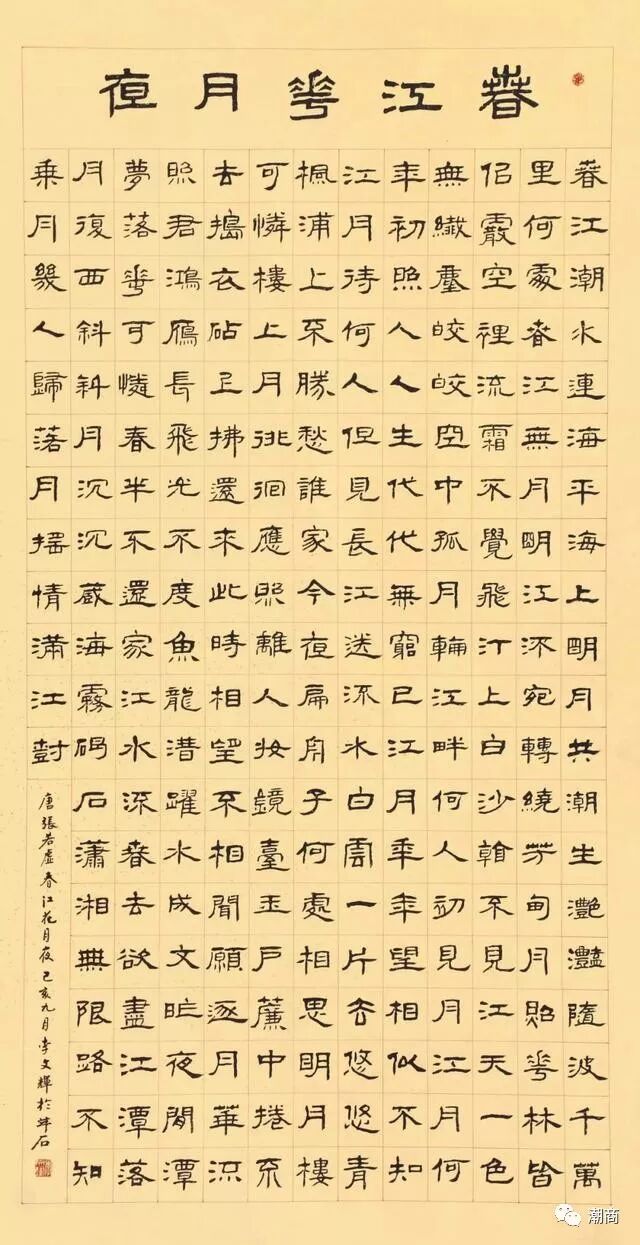 春江花月夜
春江潮水連海平海上明月共潮生灩灩隨波千萬
里何處春江無月明江流宛轉繞芳甸月照花林皆
似霰空裡流霜不覺飛汀上白沙看不見江天一色
無纖塵皎皎空中孤月輪江畔何人初見月江月何
年初照人人生代代無窮已江月年年望相似不知
江月待何人但見長江送流水白雲一片去悠悠青
楓浦上不勝愁誰家今夜扁舟子何處相思明月樓
可憐樓上月徘徊應照離人妝鏡臺玉戶簾中捲不
去搗衣砧上拂還來此時相望不相聞願逐月華流
照君鴻雁長飛光不度魚龍潛躍水成文昨夜閒潭
夢落花可憐春半不還家江水流春去欲盡江潭落
月復西斜斜月沉沉藏海霧碣石瀟湘無限路不知
乘月幾人歸落月搖情滿江樹
唐張若虛春江花月夜己亥九月李文輝於石
潮商